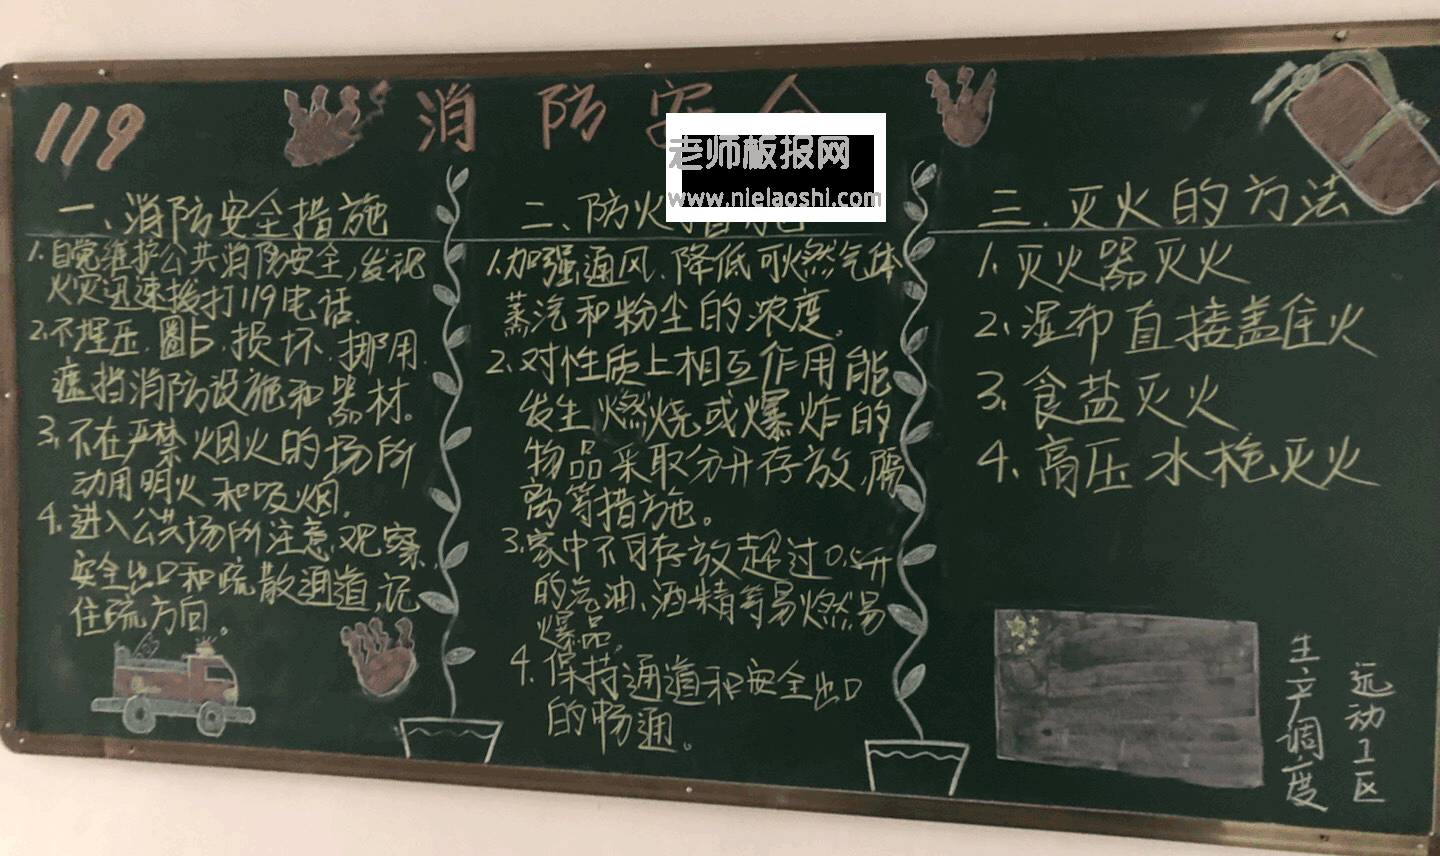 119 消防安全
老师板报网
www.nielaoshi.com
一、消防安全措施
1.自觉维护公共消防安全,发现
火灾迅速拨打119电话.
2.不埋压.圈占.损坏.挪用.
遮挡消防设施和器材。
3.不在严禁烟火的场所
动用明火和吸烟.
4.进入公共场所注意观察
安全出口和疏散通道,记
住疏方向。
二、防火措施
1.加强通风、降低可燃气体
蒸汽和粉尘的浓度。
2.对性质上相互作用能
发生燃烧或爆炸的
物品采取分开存放,隔
离等措施。
3.家中不可存放超过0.5升
的汽油、酒精等易燃易
爆品。
4.保持通道和安全出口
的畅通。
三.灭火的方法
1.灭火器灭火
2.湿布直接盖住火
3.食盐灭火
4.高压水枪灭火
远动工区
生产调度